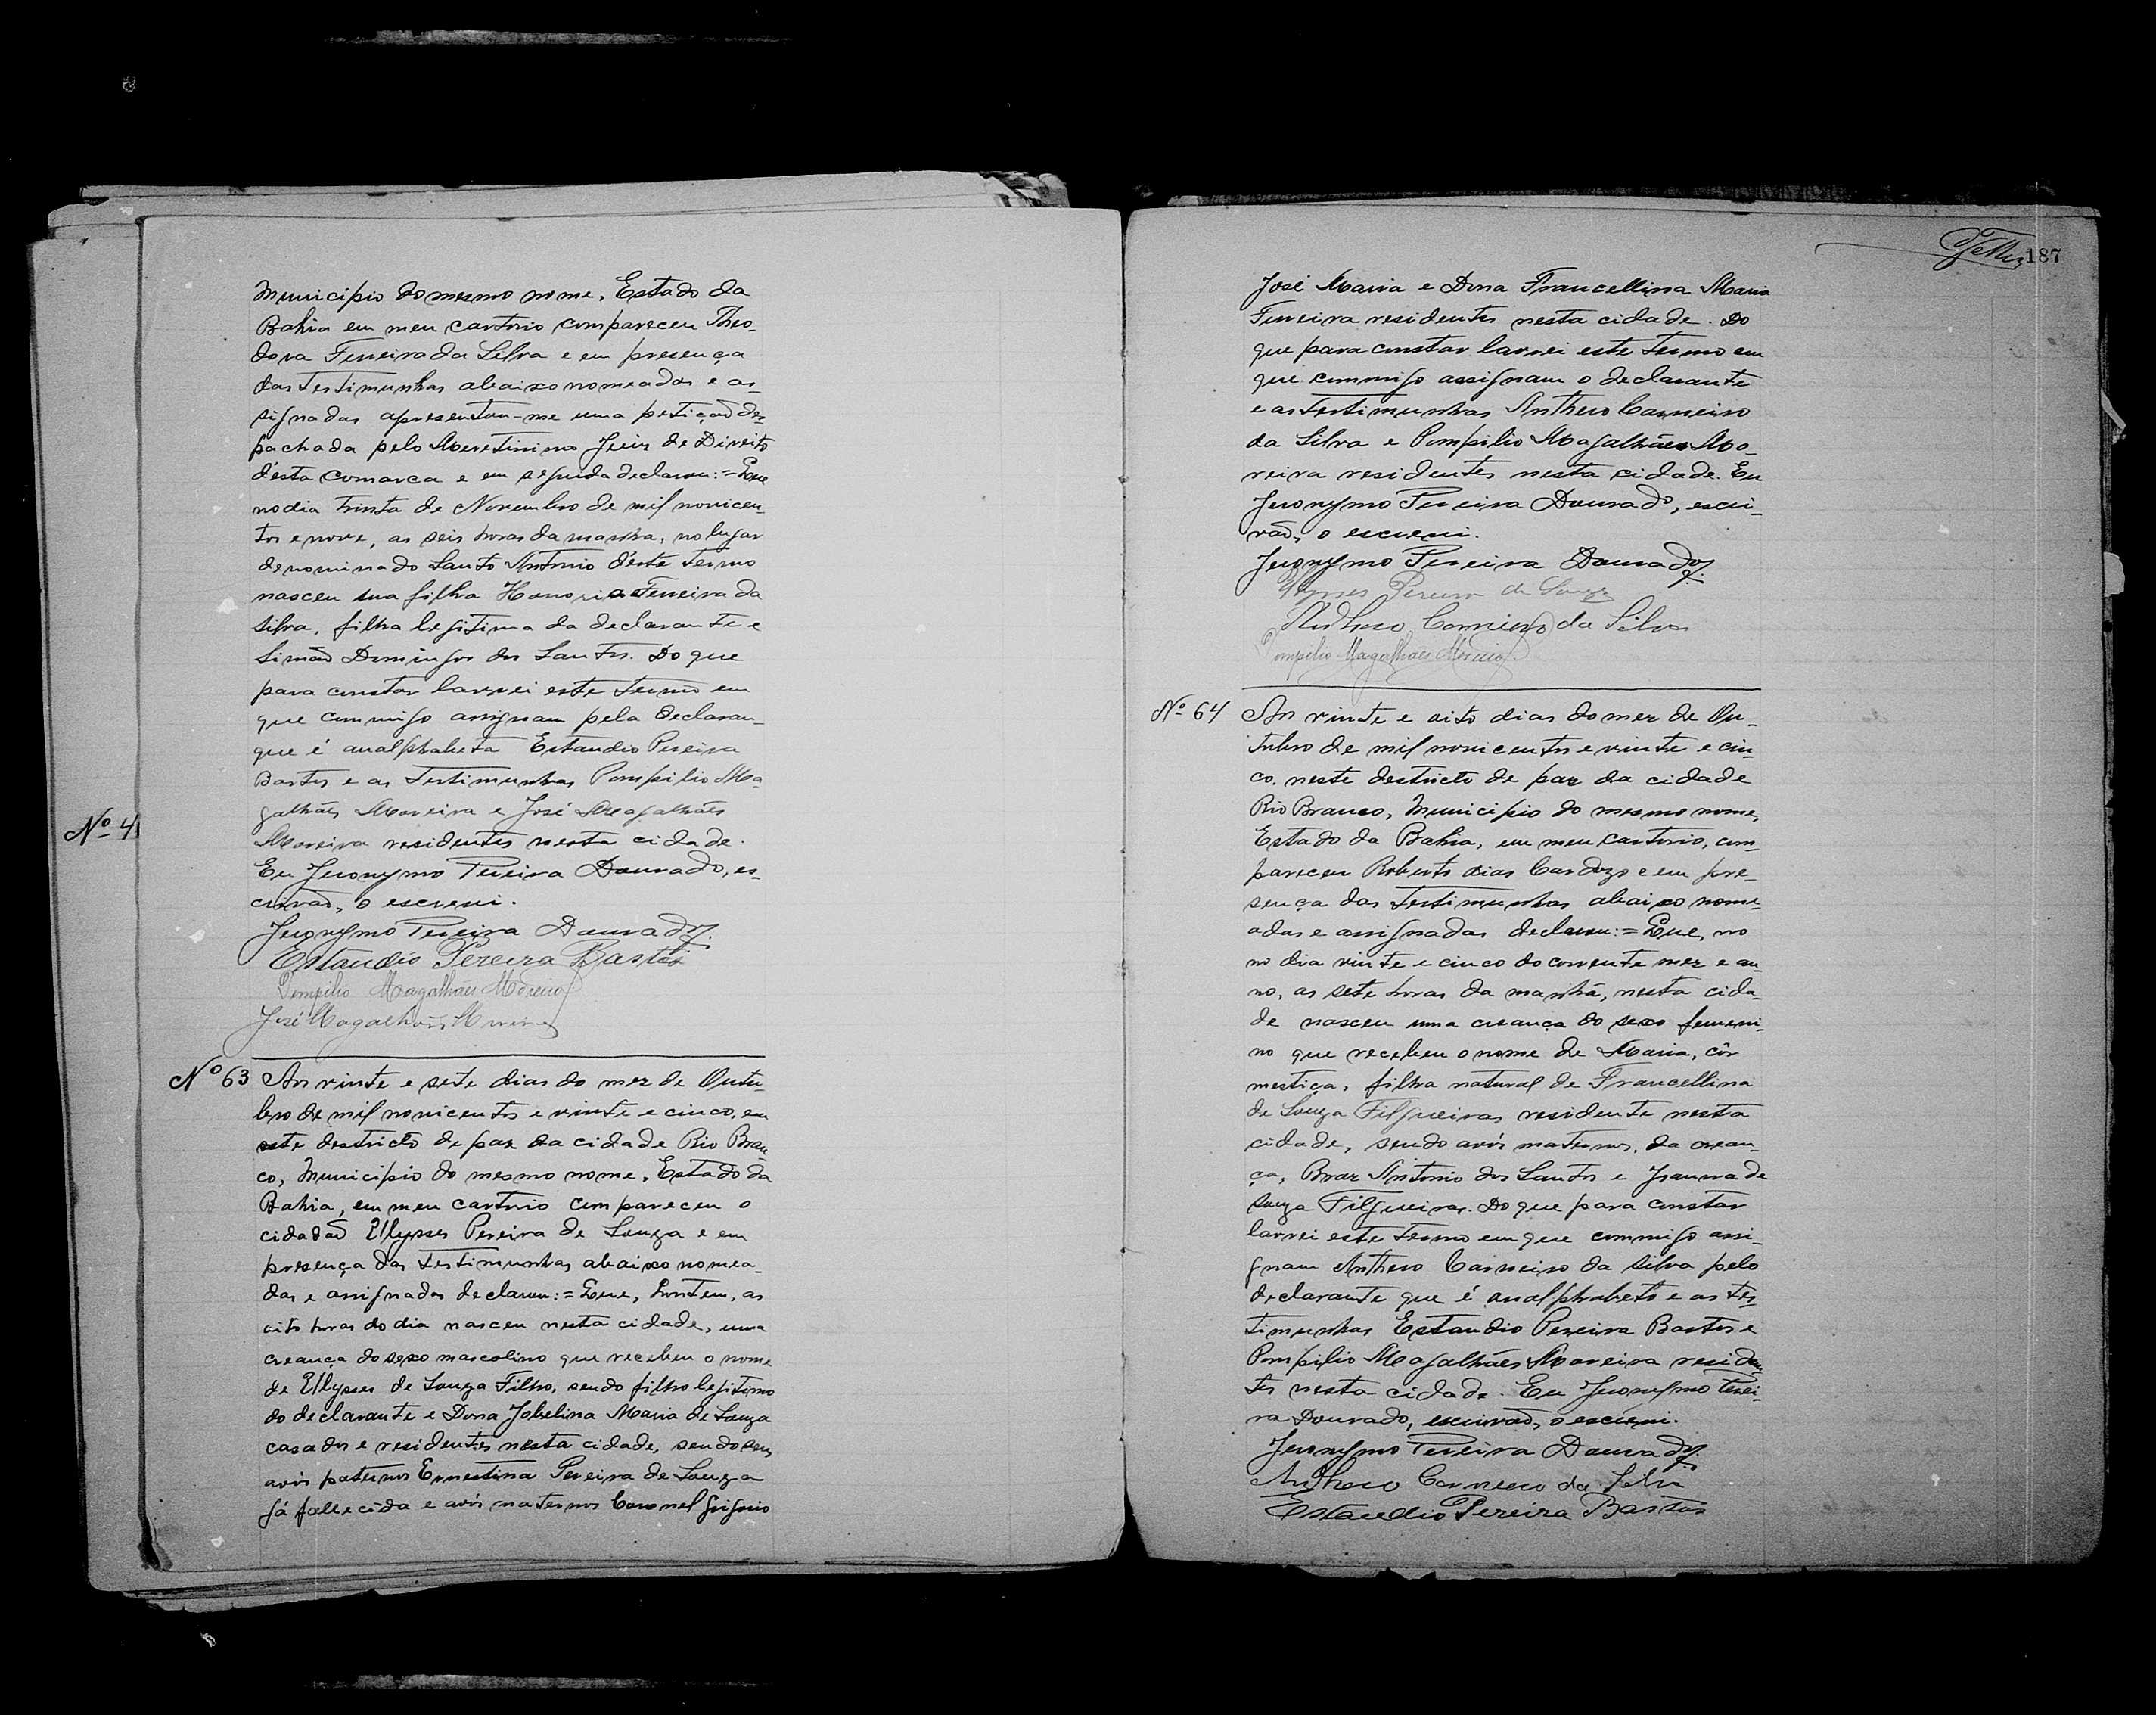 Municipio do mesmo nome, Estado da
Bahia em meu cartorio compareceu Theo-
dora Ferreira da Silva e em presença
das testimunhas abaixo nomeadas e as-
signadas apresentou-me uma petição des-
pachada pelo Meretissimo Juiz de Direito
d'esta comarca e em seguida declarou:=Que
no dia trinta de Novembro de mil novicen-
tos e nove, as seis horas da manha, no lugar
denominado Santo Antonio d'este termo
nasceu sua filha Honoria Ferreira da
Silva, filha legitima da declarante e
Simão Domingos dos Santos. Do que
para constar lavrei este termo em
que commigo assignam pela declaran-
que é analphabeta Estaudio Pereira
Bastos e as testimunhas Pompilio Ma-
galhães Moreira e José Magalhães
Moreira residentes nesta cidade.
Eu Jeronymo Pereira Dourado, es-
crivão, o escrevi.
Jeronymo Pereira Dourado.
Estaudio Pereira Bastos
Pompilio Magalhães Moreira
José Magalhães Moreira
Nº 4
Nº 63 Aos vinte e sete dias do mez de Outu-
bro de mil novicentos e vinte e cinco, em
este destricto de paz da cidade Rio Bran-
co, Municipio do mesmo nome, Estado da
Bahia, em meu cartorio compareceu o
cidadão Ulysses Pereira de Souza e em
presença das testimunhas abaixo nomea-
das e assignadas declarou:=Que, hontem, as
oito horas do dia nasceu nesta cidade, uma
creança do sexo mascolino que recebeu o nome
de Ulysses de Souza Filho, sendo filho legitimo
do declarante e Dona Jobelina Maria de Souza
casados e residentes nesta cidade, sendo seus
avós paternos Ernestina Pereira de Souza
já fallecida e avós maternos Coronel Grigorio
187
José Maria e Dona Francellina Maria
Ferreira residentes nesta cidade. Do
que para constar lavrei este termo em
que commigo assignam o declarante
e as testimunhas Anthero Carneiro
da Silva e Pompilio Magalhães Mo-
reira residentes nesta cidade. Eu
Jeronymo Pereira Dourado, escri-
vão, o escrevi.
Jeronymo Pereira Dourado.
Ulysses Pereira de Souza
Anthero Carneiro da Silva
Pompilio Magalhães Moreira
Nº 64 Aos vinte e oito dias do mez de Ou-
tubro de mil novicentos e vinte e cin-
co, neste destricto de paz da cidade
Rio Branco, Municipio do mesmo nome,
Estado da Bahia, em meu cartorio, com-
pareceu Roberto Dias Cardozo e em pre-
sença das testimunhas abaixo nome-
adas e assignadas declarou:=Que, no
no dia vinte e cinco do corrente mez e an-
no, as sete horas da manhã, nesta cida-
de nasceu uma creança do sexo femeni-
no que recebeu o nome de Maria, côr
mestiça, filha natural de Francellina
de Souza Filgueiras residente nesta
cidade, sendo avós maternos, da crean-
ça, Braz Antonio dos Santos e Joanna de
Souza Filgueiras. Do que para constar
lavrei este termo em que commigo assi-
gnam Anthero Carneiro da Silva pelo
declarante que é analphabeto e as tes-
timunhas Estaudio Pereira Bastos e
Pompilio Magalhães Moreira residen-
tes nesta cidade. Eu Jeronymo Perei-
ra Dourado, escrivão, o escrevi.
Jeronymo Pereira Dourado.
Anthero Carneiro da Silva
Estaudio Pereira Bastos